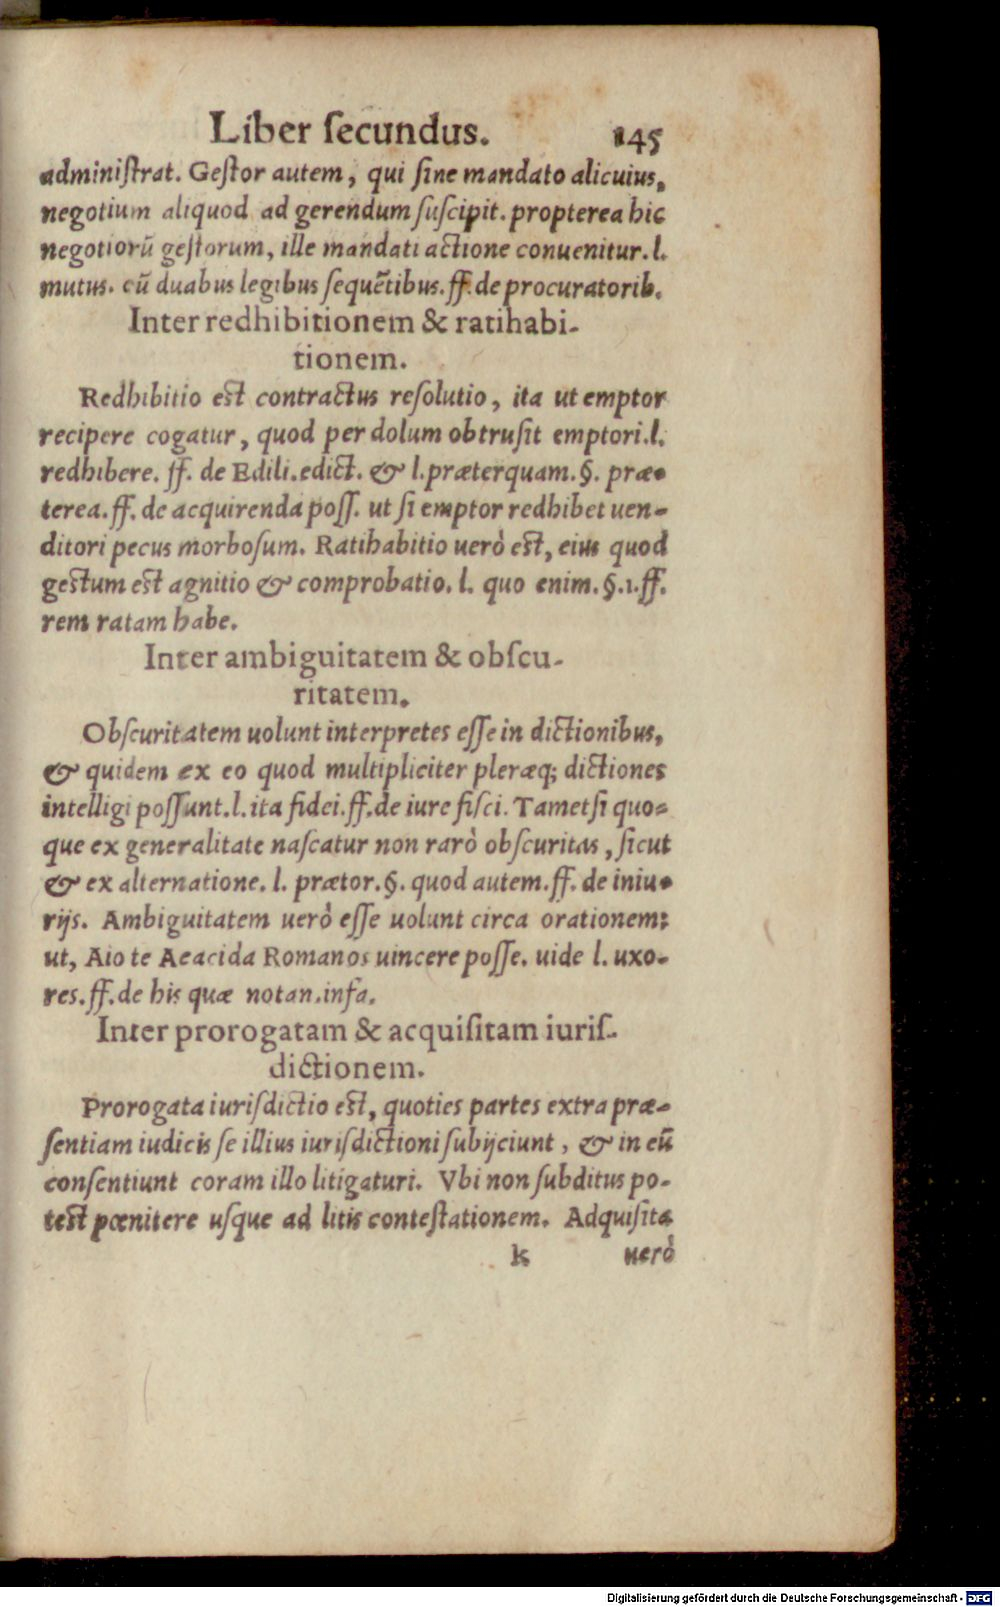 Liber ſecundus. 145
adminiſtrat. Geſtor autem, qui ſine mandato alicuius,
negotium aliquod ad gerendum ſuſcipit. propterea hic
negotiorũ geſtorum, ille mandati actione conuenitur. l.
mutus. cũ duabus legibus ſequẽtibus. ff. de procuratorib.
Inter redhibitionem & ratihabi-
tionem.
Redhibitio eſt contractus reſolutio, ita ut emptor
recipere cogatur, quod per dolum obtruſit emptori. l.
redhibere. ff. de Edili. edict. & l. præterquam. §. præ-
terea. ff. de acquirenda poſſ. ut ſi emptor redhibet uen-
ditori pecus morboſum. Ratihabitio uerò eſt, eius quod
geſtum eſt agnitio & comprobatio. l. quo enim. §. 1. ff.
rem ratam habe.
Inter ambiguitatem & obſcu-
ritatem.
Obſcuritatem uolunt interpretes eſſe in dictionibus,
& quidem ex eo quod multipliciter pleræq; dictiones
intelligi poſſunt. l. ita fidei. ff. de iure fiſci. Tametſi quo-
que ex generalitate naſcatur non rarò obſcuritas, ſicut
& ex alternatione. l. prætor. §. quod autem. ff. de iniu-
rijs. Ambiguitatem uerò eſſe uolunt circa orationem:
ut, Aio te Aeacida Romanos uincere poſſe. uide l. uxo-
res. ff. de his quæ notan. infa.
Inter prorogatam & acquiſitam iuriſ-
dictionem.
Prorogata iuriſdictio eſt, quoties partes extra præ-
ſentiam iudicis ſe illius iuriſdictioni ſubijciunt, & in eũ
conſentiunt coram illo litigaturi. Vbi non ſubditus po-
teſt pœnitere uſque ad litis conteſtationem. Adquiſita
k uerò
Digitalisierung gefördert durch die Deutsche Forschungsgemeinschaft - DFG